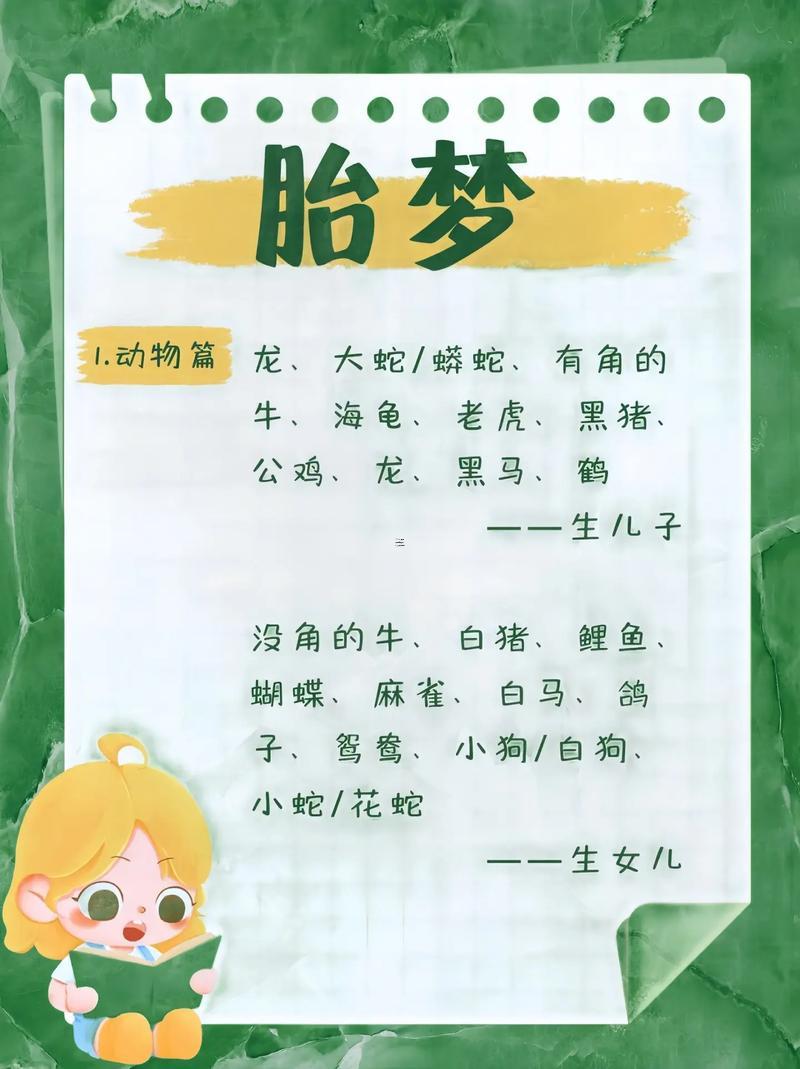 胎梦
1.动物篇
龙、大蛇/蟒蛇、有角的
牛、海龟、老虎、黑猪、
公鸡、龙、黑马、鹤
——生儿子
没角的牛、白猪、鲤鱼、
蝴蝶、麻雀、白马、鸽
子、鸳鸯、小狗/白狗、
小蛇/花蛇
——生女儿